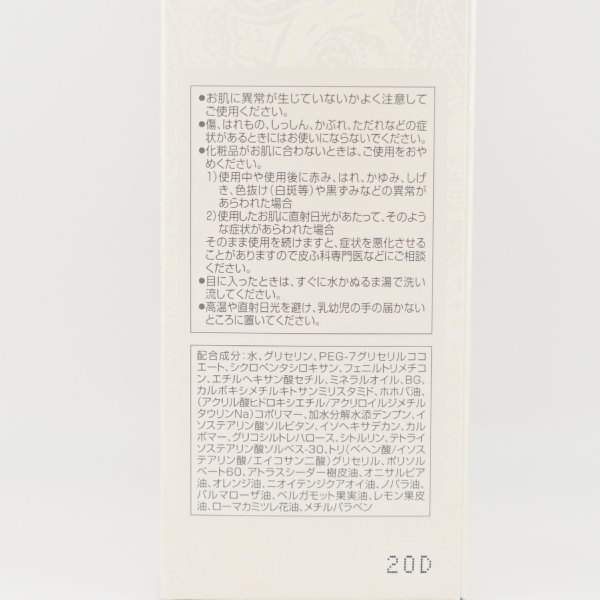 ●お肌に異常が生じていないかよく注意して
ご使用ください。
●傷、はれもの、しっしん、かぶれ、ただれなどの症
状があるときにはお使いにならないでください。
●化粧品がお肌に合わないときは、ご使用をおや
めください。
1)使用中や使用後に赤み、はれ、かゆみ、しげ
き、色抜け(白斑等)や黒ずみなどの異常が
あらわれた場合
2)使用したお肌に直射日光があたって、そのよう
な症状があらわれた場合
そのまま使用を続けますと、症状を悪化させる
ことがありますので皮ふ科専門医などにご相談
ください。
●目に入ったときは、すぐに水かぬるま湯で洗い
流してください。
●高温や直射日光を避け、乳幼児の手の届かない
ところに置いてください。
配合成分:水、グリセリン、PEG-7グリセリルココ
エート、シクロペンタシロキサン、フェニルトリメチコ
ン、エチルヘキサン酸セチル、ミネラルオイル、BG、
カルボキシメチルキトサンミリスタミド、ホホバ油、
(アクリル酸ヒドロキシエチル/アクリロイルジメチル
タウリンNa)コポリマー、加水分解水添デンプン、イ
ソステアリン酸ソルビタン、イソヘキサデカン、カル
ボマー、グリコシルトレハロース、シトルリン、テトライ
ソステアリン酸ソルベス-30、トリ(ベヘン酸/イソス
テアリン酸/エイコサン二酸)グリセリル、ポリソル
ベート60、アトラスシーダー樹皮油、オニサルビア
油、オレンジ油、ニオイテンジクアオイ油、ノバラ油、
パルマローザ油、ベルガモット果実油、レモン果皮
油、ローマカミツレ花油、メチルパラベン
20D